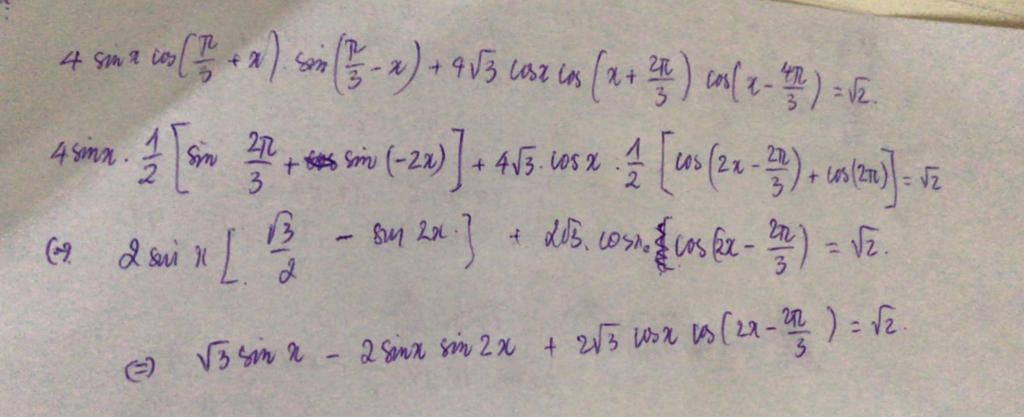 4 sin x cos(π/3 + x). sin(π/3 - x) + 4√3 cosx cos(x + 2π/3) cos(x - 4π/3) = √2.
4 sinx. 1/2 [sin 2π/3 + sin(-2x)] + 4√3. cos x . 1/2 [cos(2x - 2π/3) + cos(2π)] = √2
(=). 2 sin x [√3/2 - sin 2x.] + 2√3. cosx. cos(2x - 2π/3) = √2.
(=) √3 sin x - 2 sinx sin 2x + 2√3 cosx cos(2x - 2π/3) = √2.